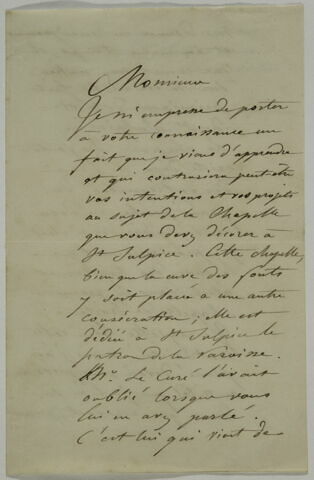 Monsieur
Je m'empresse de porter
à votre connaissance un
fait que je viens d'apprendre
et qui contrariera peut-être
vos intentions et vos projets
au sujet de la Chapelle
que vous devez décorer à
St Sulpice. Cette chapelle,
bien que la cuve des fonts
y soit placée a une autre
consécration; elle est
dédiée à St Sulpice le
patron de la Paroisse.
Mr. Le Curé l'avait
oublié lorsque vous
lui en avez parlé.
C'est lui qui vient de